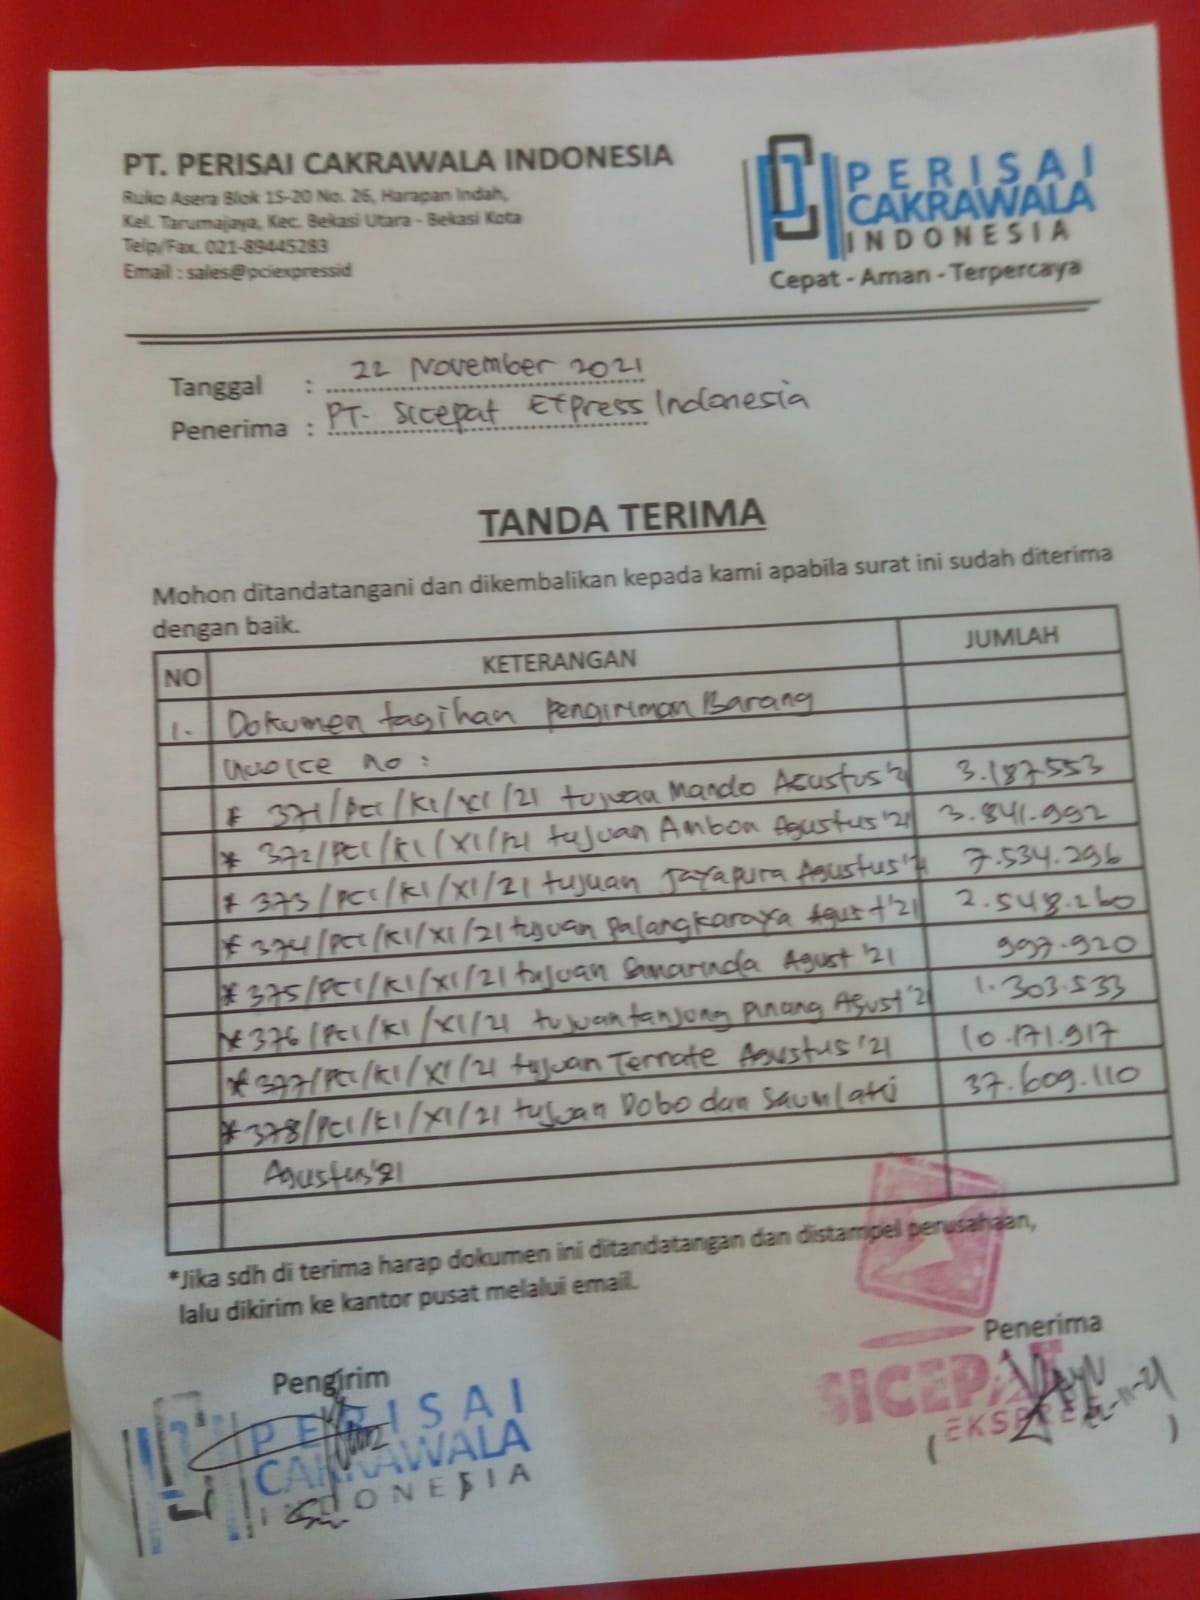 PT. PERISAI CAKRAWALA INDONESIA
Ruko Asera Blok 1S-20 No. 26, Harapan Indah,
Kel. Tarumajaya, Kec. Bekasi Utara - Bekasi Kota
Telp/Fax. 021-89445283
Email : sales@pciexpressid
PERISAI
CAKRAWALA
INDONESIA
Cepat - Aman - Terpercaya
Tanggal : 22 November 2021
Penerima : PT. Sicepat Express Indonesia
TANDA TERIMA
Mohon ditandatangani dan dikembalikan kepada kami apabila surat ini sudah diterima
dengan baik.
NO KETERANGAN JUMLAH
1. Dokumen tagihan Pengiriman Barang
Invoice no :
* 371/PCI/KI/XI/21 tujuan Manado Agustus'21 3.187.553
* 372/PCI/KI/XI/21 tujuan Ambon Agustus'21 3.841.992
* 373/PCI/KI/XI/21 tujuan Jayapura Agustus'21 7.534.296
* 374/PCI/KI/XI/21 tujuan Palangkaraya Agust'21 2.548.260
* 375/PCI/KI/XI/21 tujuan Samarinda Agust '21 997.920
* 376/PCI/KI/XI/21 tujuan tanjung pinang Agust'21 1.303.533
* 377/PCI/KI/XI/21 tujuan Ternate Agustus '21 10.171.917
* 378/PCI/KI/XI/21 tujuan Dobo dan Saumlaki 37.609.110
Agustus'21
*Jika sdh di terima harap dokumen ini ditandatangan dan distampel perusahaan,
lalu dikirim ke kantor pusat melalui email.
Pengirim
Penerima
PERISAI
CAKRAWALA
INDONESIA
SICEPAT
EKSPRES